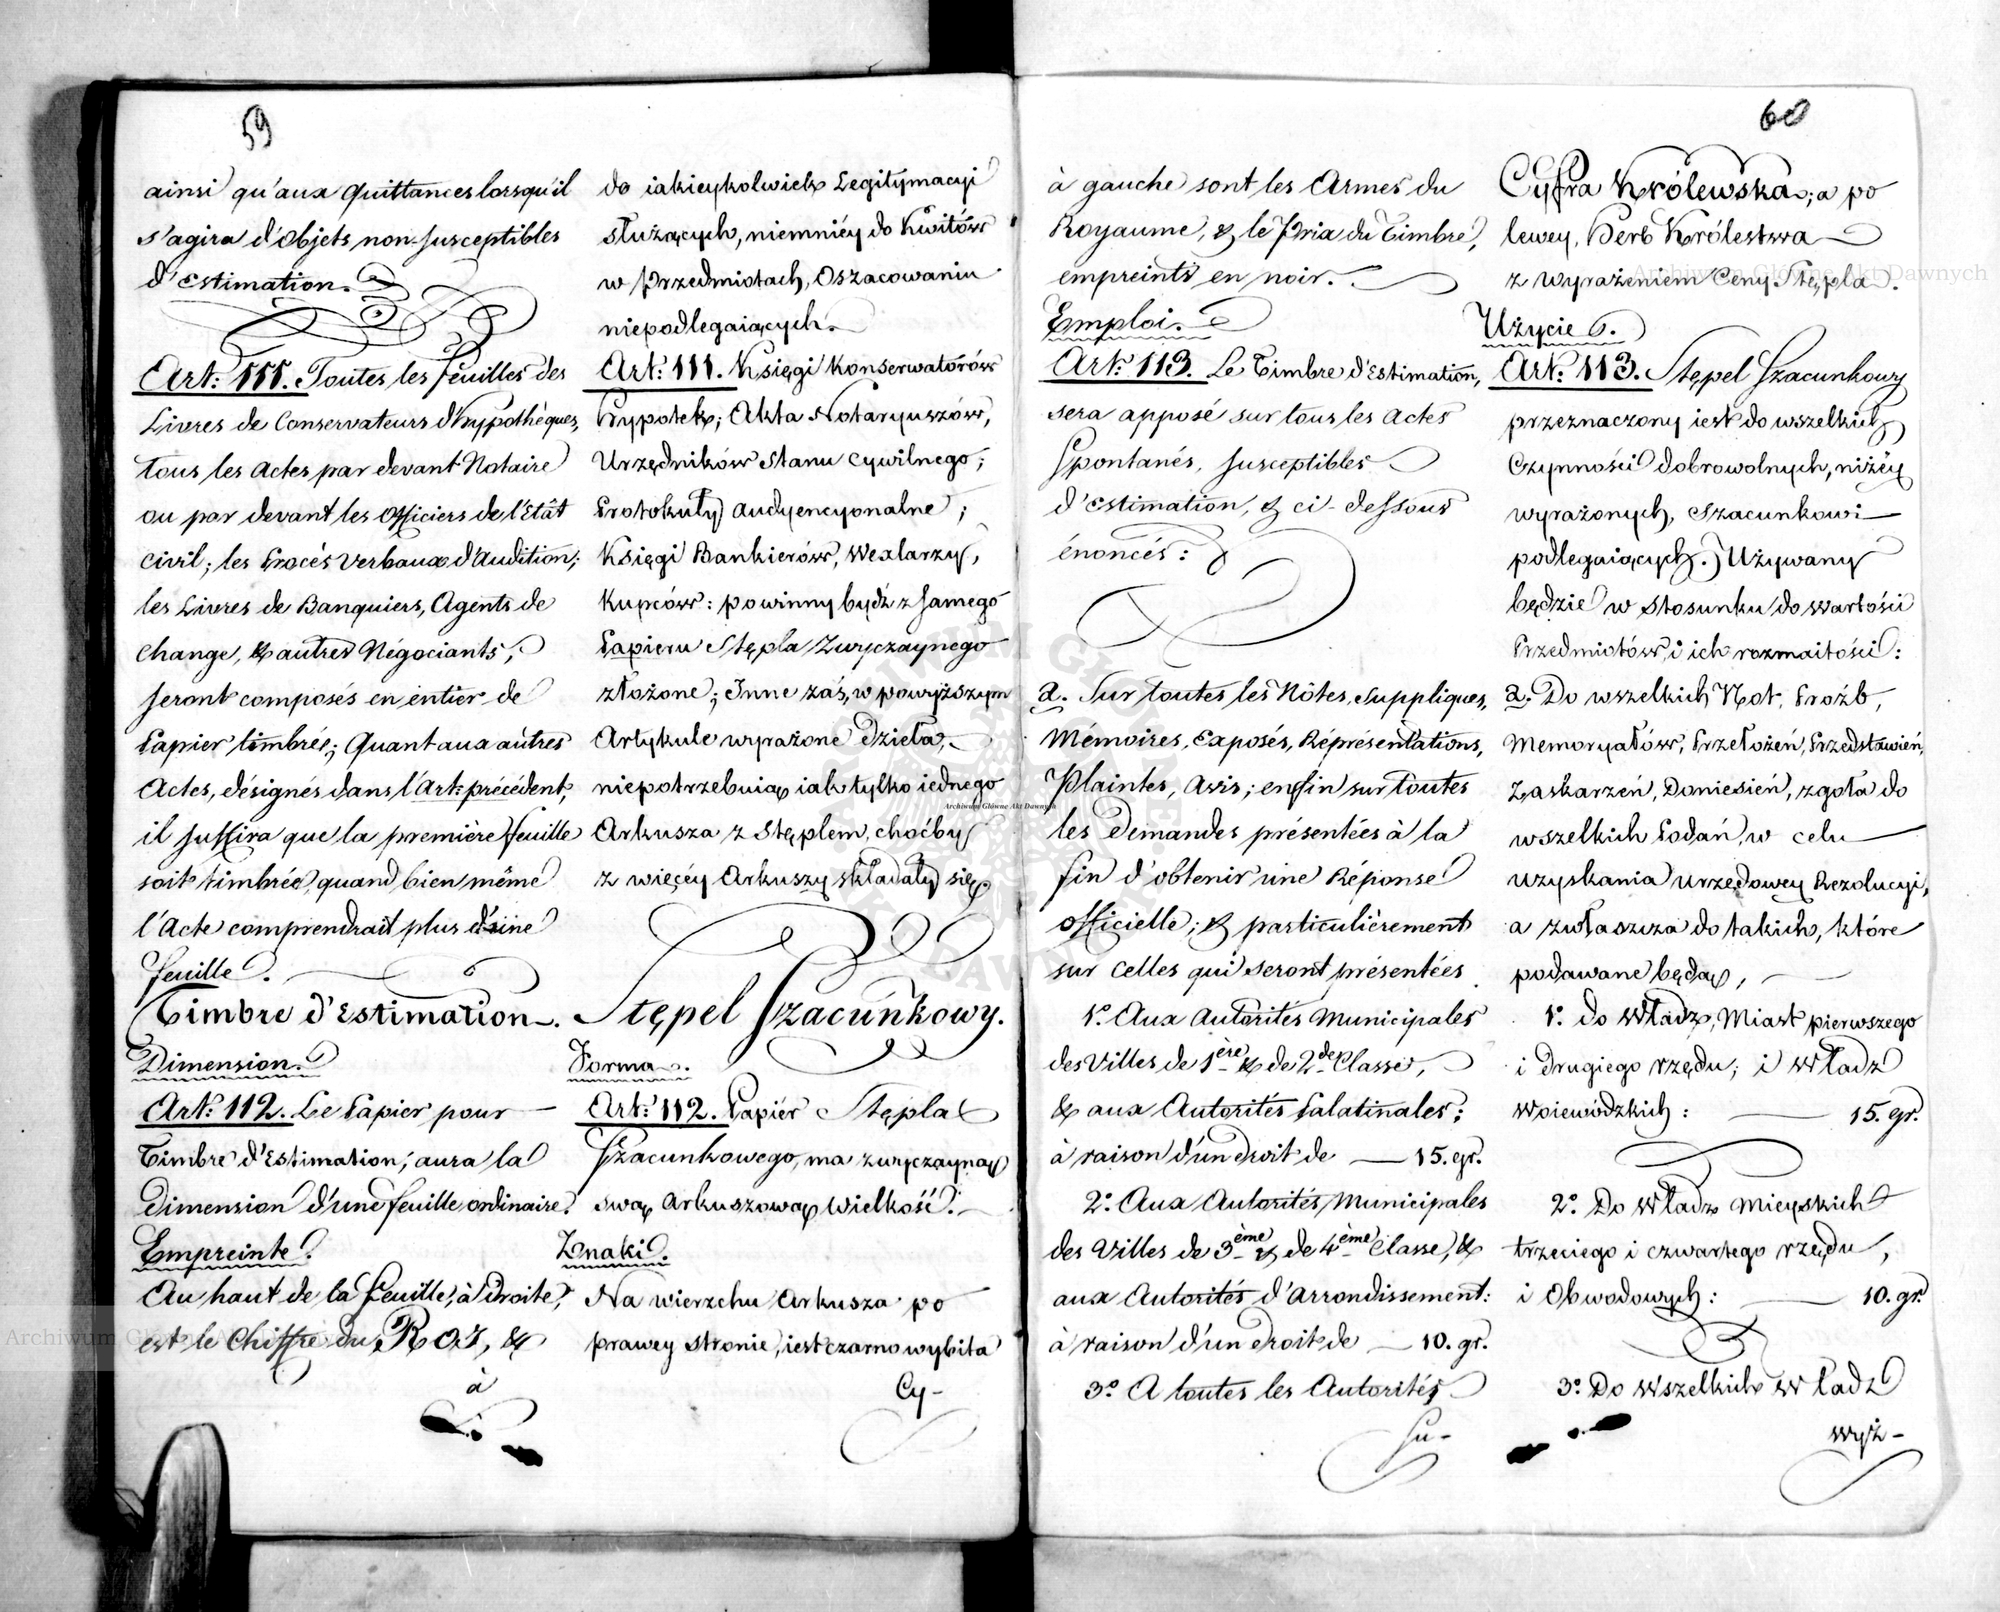 59
ainsi qu'aux Quittances lorsqu'il
s'agira d'Objets non-susceptibles
d'Estimation.
Art: 111. Toutes les feuilles des
Livres de Conservateurs d'hypothèques,
tous les Actes par devant Notaire
ou par devant les Officiers de l'Etât
civil; les Procés Verbaux d'Audition;
les Livres de Banquiers, Agents de
Change, & autres Négociants;
seront composés en entier de
Papier timbré; Quant aux autres
Actes, désignés dans l'Art: précédent,
il suffira que la première feuille
soit timbrée, quand bien même
l'Acte comprendrait plus d'une
feuille.
Timbre d'Estimation.
Dimension.
Art: 112. Le Papier pour
Timbre d'Estimation, aura la
Dimension d'une feuille ordinaire.
Empreinte.
Au haut de la feuille, à Droite,
est le Chiffre du ROI, &
à
do iakieykolwiek Legitymacyi
służących, niemniéy do Kwitów
w Przedmiotach, Oszacowaniu
niepodlegaiących.
Art: 111. Księgi Konserwatorów
Hypotek; Akta Notaryuszów,
Urzędników Stanu Cywilnego;
Protokuły audyencyonalne;
Księgi Bankierów, Wexlarzy,
Kupców: powinny bydź z samego
Papieru Stępla Zwyczaynego
złożone; Inne zaś, w powyższym
Artykule wyrażone Dzieła,
niepotrzebuią iak tylko iednego
Arkusza z Stęplem, choćby
z więcéy Arkuszy składały się.
Stępel Szacunkowy.
Forma.
Art: 112. Papiér Stępla
Szacunkowego, ma zwyczayną
swą Arkuszową Wielkość.
Znaki.
Na wierzchu Arkusza po
prawey stronie, iest czarno wybita
Cy-
60
à gauche sont les Armes du
Royaume, & le Prix du Timbre,
empreints en noir.
Emploi.
Art: 113. Le Timbre d'Estimation,
sera apposé sur tous les Actes
spontanés, susceptibles
d'Estimation, & ci-dessous
énoncés:
a. Sur toutes les Nôtes, Suppliques,
Mémoires, Exposés, Réprésentations,
Plaintes, Avis; enfin sur toutes
les Demandes présentées à la
fin d'obtenir une Réponse
officielle; & particulièrement
sur celles qui seront présentées
1º. Aux Autorités Municipales
des Villes de 1ère & de 2de Classe,
& aux Autorités Palatinales;
à raison d'un droit de — 15. gr.
2º. Aux Autorités Municipales
des Villes de 3ème & de 4ème Classe, &
aux Autorités d'Arrondissement:
à raison d'un droit de — 10. gr.
3º. A toutes les Autorités
Su-
Cyfra Królewska; a po
lewey, Herb Królestwa
z wyrażeniem Ceny Stępla.
Użycie.
Art: 113. Stępel Szacunkowy
przeznaczony iest do wszelkich
Czynności dobrowolnych, niżéy
wyrażonych, Szacunkowi
podlegaiących. Używany
będzie w Stosunku do wartości
Przedmiotów, i ich rozmaitości:
a. Do wszelkich Not, Proźb,
Memoryałów, Przełożeń, Przedstawień,
Zaskarzeń, Doniesień, zgoła do
wszelkich Podań, w celu
uzyskania urzędowey Rezolucyi,
a zwłaszcza do takich, które
podawane będą,
1º. do Władz, Miast pierwszego
i Drugiego rzędu; i Władz
Woiewódzkich: — 15. gr.
2º. Do Władz Mieyskich
trzeciego i czwartego rzędu,
i Obwodowych: — 10. gr.
3º. Do Wszelkich Władz
wyż-
Archiwum Główne Akt Dawnych